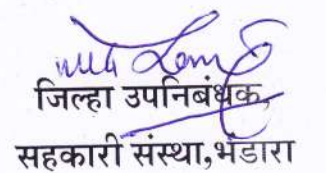 जिल्हा उपनिबंधक,
सहकारी संस्था,भंडारा